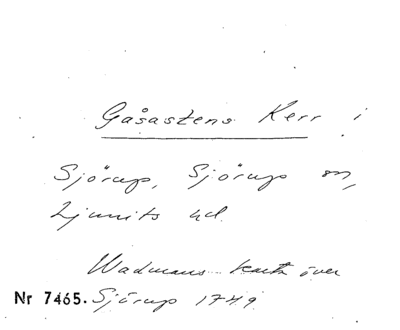 Gåsastens Kerr i
Sjörup, Sjörup sn,
Ljunits hd
Wadmans karta över
Nr 7465. Sjörup 1749